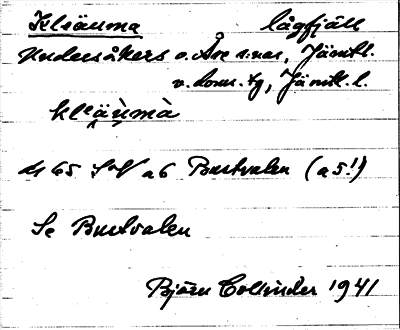 Klsäuma lågfjäll
Undersåkers o. Åre s:nar, Jämtl.
v. doms. tg, Jämtl. l.
kleäùmà
65 SV a6 Bustvalen (a5!)
Se Bustvalen
Björn Collinder 1941